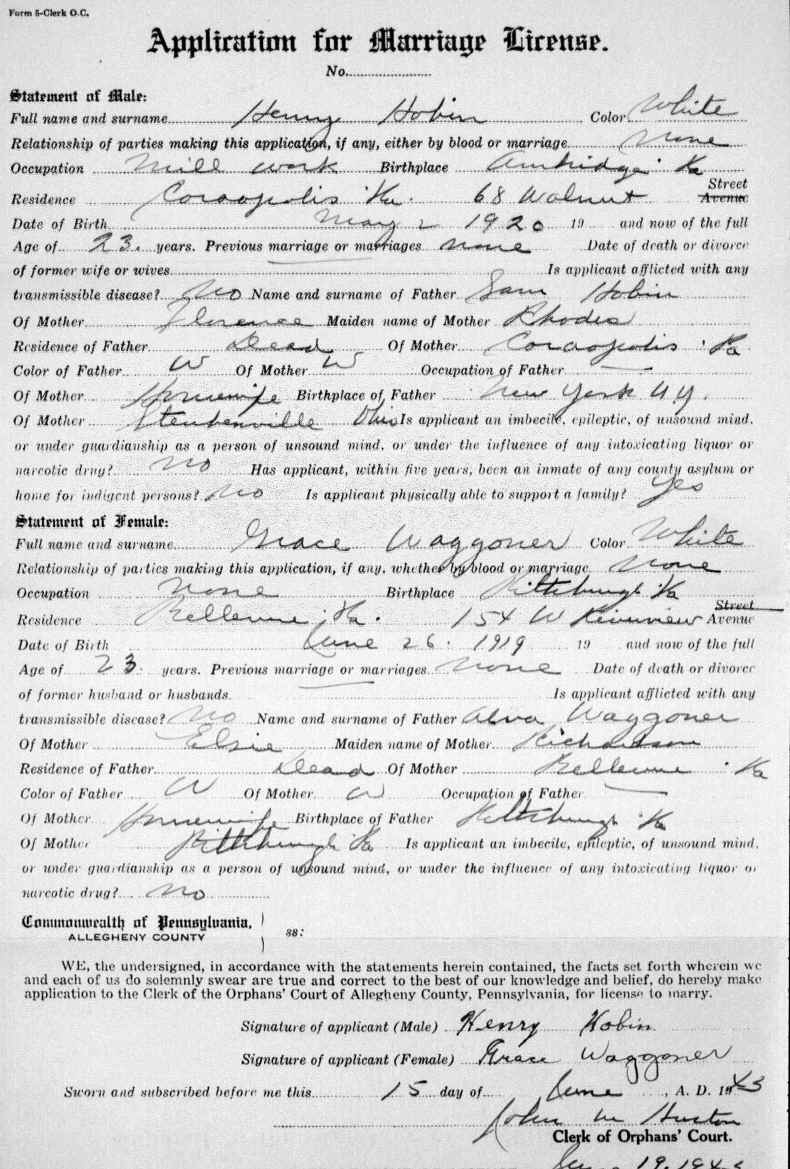 Form 5-Clerk O.C.
Application for Marriage License.
No.
Statement of Male:
Full name and surname Henry Hobin Color White
Relationship of parties making this application, if any, either by blood or marriage none
Occupation Mill work Birthplace Ambridge Pa
Street
Residence Coraopolis Pa. 68 Walnut Avenue
Date of Birth May 2 1920 19 and now of the full
Age of 23 years. Previous marriage or marriages none Date of death or divorce
of former wife or wives Is applicant afflicted with any
transmissible disease? No Name and surname of Father Sam Hobin
Of Mother Florence Maiden name of Mother Rhodes
Residence of Father Dead Of Mother Coraopolis Pa
Color of Father W Of Mother W Occupation of Father —
Of Mother Housewife Birthplace of Father New York N.Y.
Of Mother Steubenville Ohio Is applicant an imbecile, epileptic, of unsound mind,
or under guardianship as a person of unsound mind, or under the influence of any intoxicating liquor or
narcotic drug? No Has applicant, within five years, been an inmate of any county asylum or
home for indigent persons? No Is applicant physically able to support a family? Yes
Statement of Female:
Full name and surname Grace Waggoner Color White
Relationship of parties making this application, if any, whether by blood or marriage none
Occupation None Birthplace Pittsburgh Pa
Street
Residence Bellevue Pa. 154 W Riverview Avenue
Date of Birth June 26 1919 19 and now of the full
Age of 23 years. Previous marriage or marriages none Date of death or divorce
of former husband or husbands Is applicant afflicted with any
transmissible disease? No Name and surname of Father Alva Waggoner
Of Mother Elsie Maiden name of Mother Richardson
Residence of Father Dead Of Mother Bellevue Pa
Color of Father W Of Mother W Occupation of Father —
Of Mother Housewife Birthplace of Father Pittsburgh Pa
Of Mother Pittsburgh Pa Is applicant an imbecile, epileptic, of unsound mind,
or under guardianship as a person of unsound mind, or under the influence of any intoxicating liquor or
narcotic drug? No
Commonwealth of Pennsylvania,
ALLEGHENY COUNTY ss:
WE, the undersigned, in accordance with the statements herein contained, the facts set forth wherein we
and each of us do solemnly swear are true and correct to the best of our knowledge and belief, do hereby make
application to the Clerk of the Orphans' Court of Allegheny County, Pennsylvania, for license to marry.
Signature of applicant (Male) Henry Hobin
Signature of applicant (Female) Grace Waggoner
Sworn and subscribed before me this 15 day of June, A. D. 1943
John M Huston
Clerk of Orphans' Court.